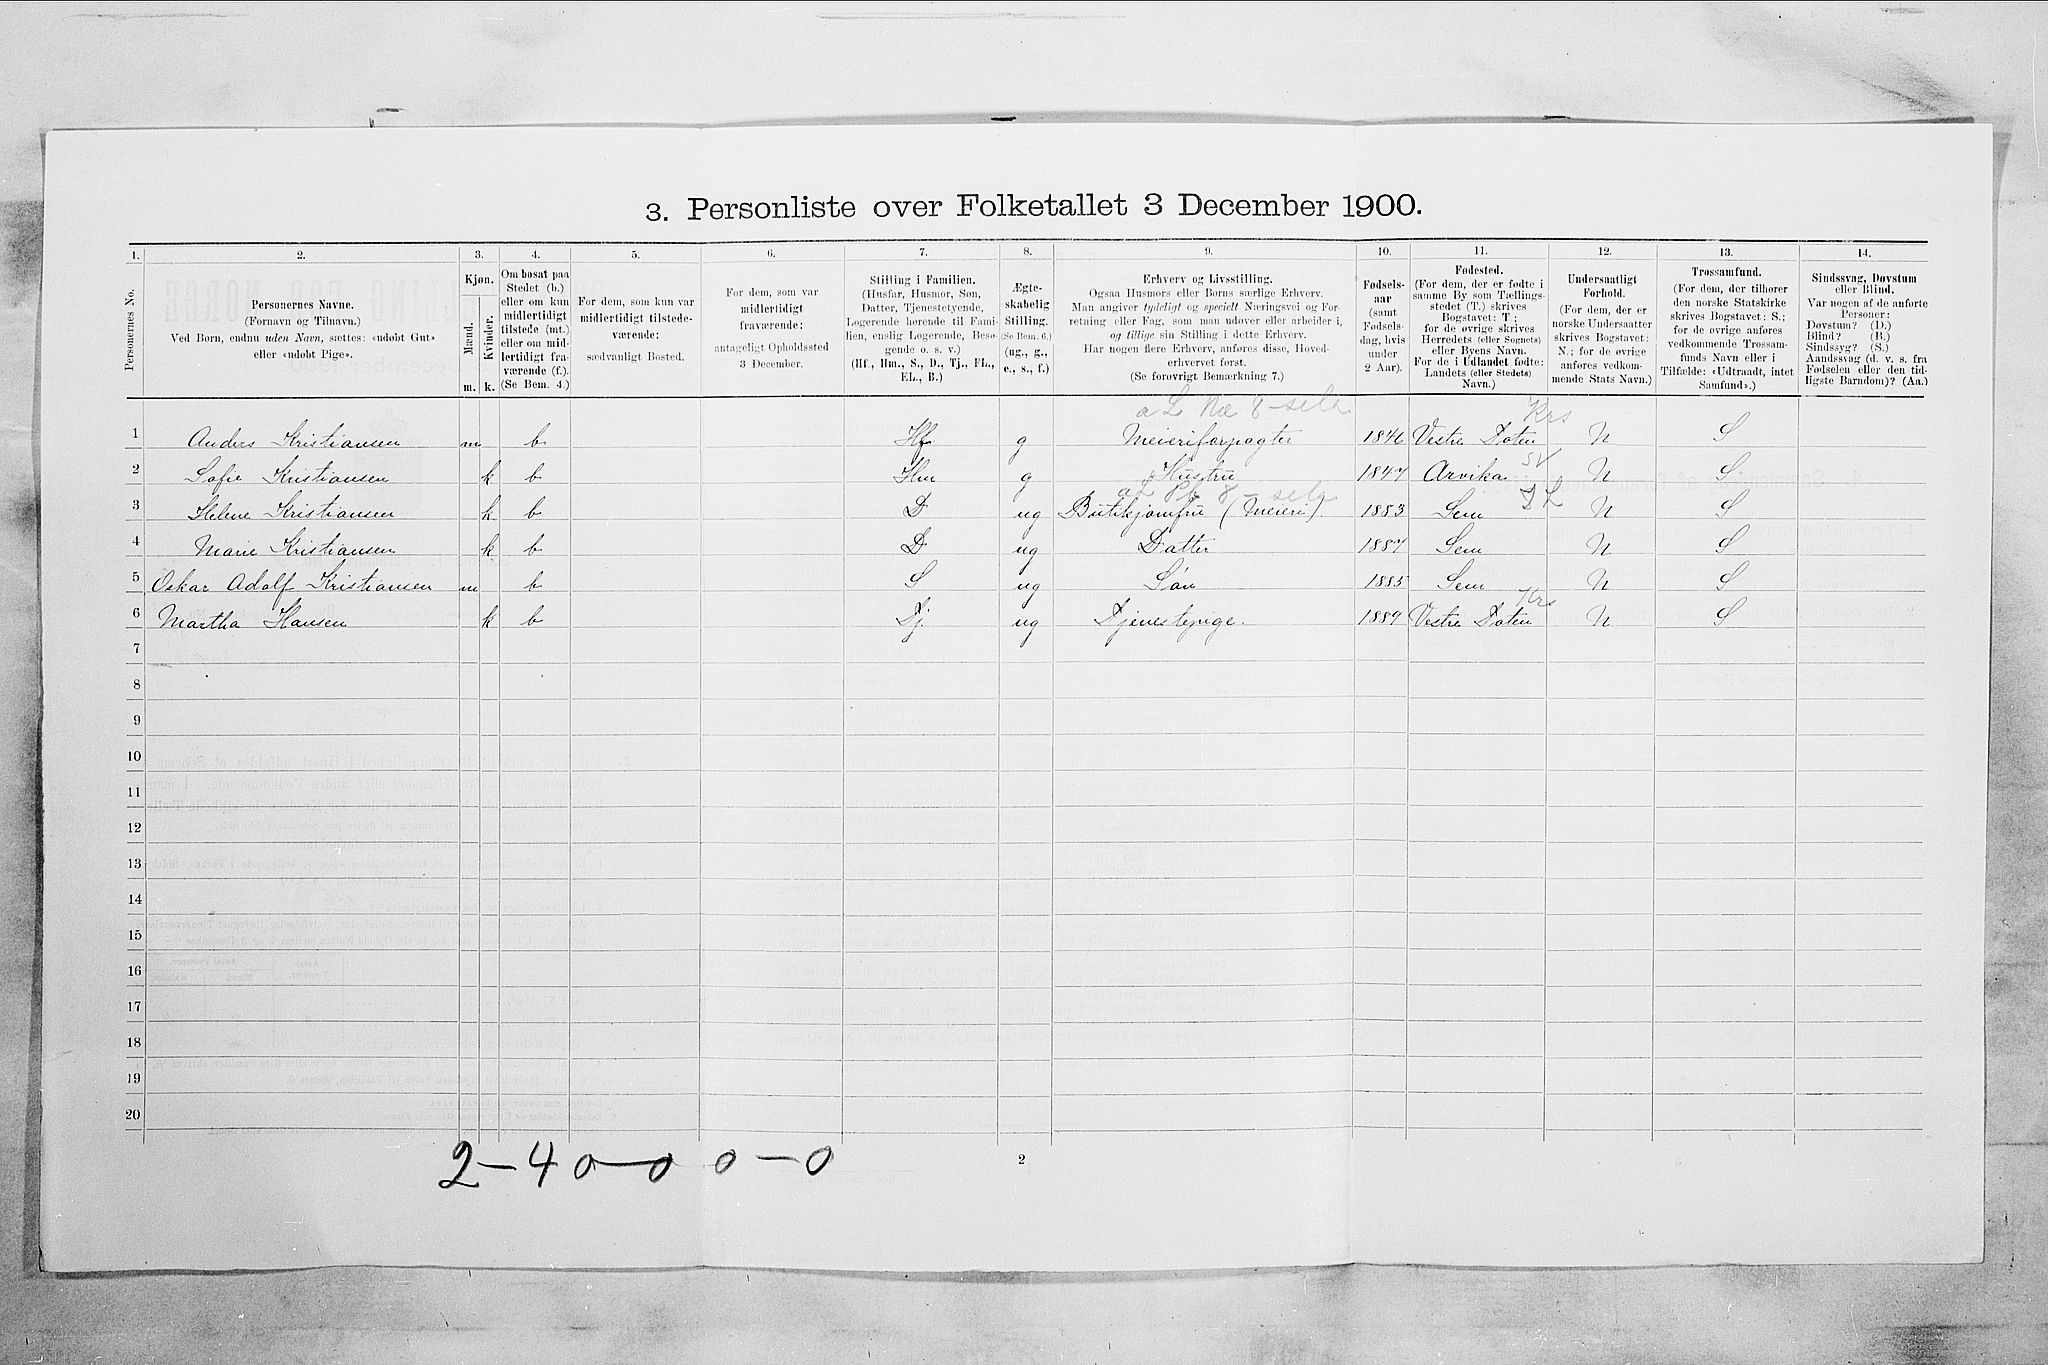 3. Personliste over Folketallet 3 December 1900.
1. 2. 3. 4. 5. 6. 7. 8. 9. 10. 11. 12. 13. 14.
Personernes No.
Personernes Navne.
(Fornavn og Tilnavn.)
Ved Børn, endnu uden Navn, sættes: «udøbt Gut»
eller «udøbt Pige».
Kjøn.
Mænd.
Kvinder.
m. k.
Om bosat paa
Stedet (b.)
eller om kun
midlertidigt
tilstede (mt.)
eller om mid-
lertidigt fra-
værende (f.).
(Se Bem. 4.)
For dem, som kun var
midlertidigt tilstede-
værende:
sædvanligt Bosted.
For dem, som var
midlertidigt
fraværende:
antageligt Opholdssted
3 December.
Stilling i Familien.
(Husfar, Husmor, Søn,
Datter, Tjenestetyende,
Logerende hørende til Fami-
lien, enslig Logerende, Besø-
gende o. s. v.)
(Hf., Hm., S., D., Tj., FL.,
EL., B.)
Ægte-
skabelig
Stilling.
(Se Bem. 6.)
(ug., g.,
e., s., f.)
Erhverv og Livsstilling.
Ogsaa Husmors eller Børns særlige Erhverv.
Man angiver tydeligt og specielt Næringsvei og For-
retning eller Fag, som man udøver eller arbeider i,
og tillige sin Stilling i dette Erhverv.
Har nogen flere Erhverv, anføres disse, Hoved-
erhvervet først.
(Se forøvrigt Bemærkning 7.)
Fødsels-
aar
(samt
Fødsels-
dag, hvis
under
2 Aar).
Fødested.
(For dem, der er fødte i
samme By som Tællings-
stedet (T.) skrives
Bogstavet: T;
for de øvrige skrives
Herredets (eller Sognets)
eller Byens Navn.
For de i Udlandet fødte:
Landets (eller Stedets)
Navn.)
Undersaatligt
Forhold.
(For dem, der er
norske Undersaatter
skrives Bogstavet:
N.; for de øvrige
anføres vedkom-
mende Stats Navn.)
Trossamfund.
(For dem, der tilhører
den norske Statskirke
skrives Bogstavet: S.;
for de øvrige anføres
vedkommende Trossam-
funds Navn eller i
Tilfælde: «Udtraadt, intet
Samfund».)
Sindssvag, Døvstum
eller Blind.
Var nogen af de anførte
Personer:
Døvstum? (D.)
Blind? (B.)
Sindssyg? (S.)
Aandssvag (d. v. s. fra
Fødselen eller den tid-
ligste Barndom)? (Aa.)
a L Næ 8 - selv Krs
1 Anders Kristiansen m b Hf g Meieriforpagter 1846 Vestre Toten N S
SV
2 Sofie Kristiansen k b Hm g Hustru 1847 Arvika N S
3 Helene Kristiansen k b D ug Butikjomfru (Meieri). 1883 Sem N S
4 Marie Kristiansen k b D ug Datter 1887 Sem N S
5 Oskar Adolf Kristiansen m b S ug Søn 1885 Sem N S
Krs
6 Martha Hansen k b Tj. ug Tjenestepige. 1889 Vestre Toten N S
7
8
9
10
11
12
13
14
15
16
17
18
19
20
2 - 4 0 - 0 0 - 0
2